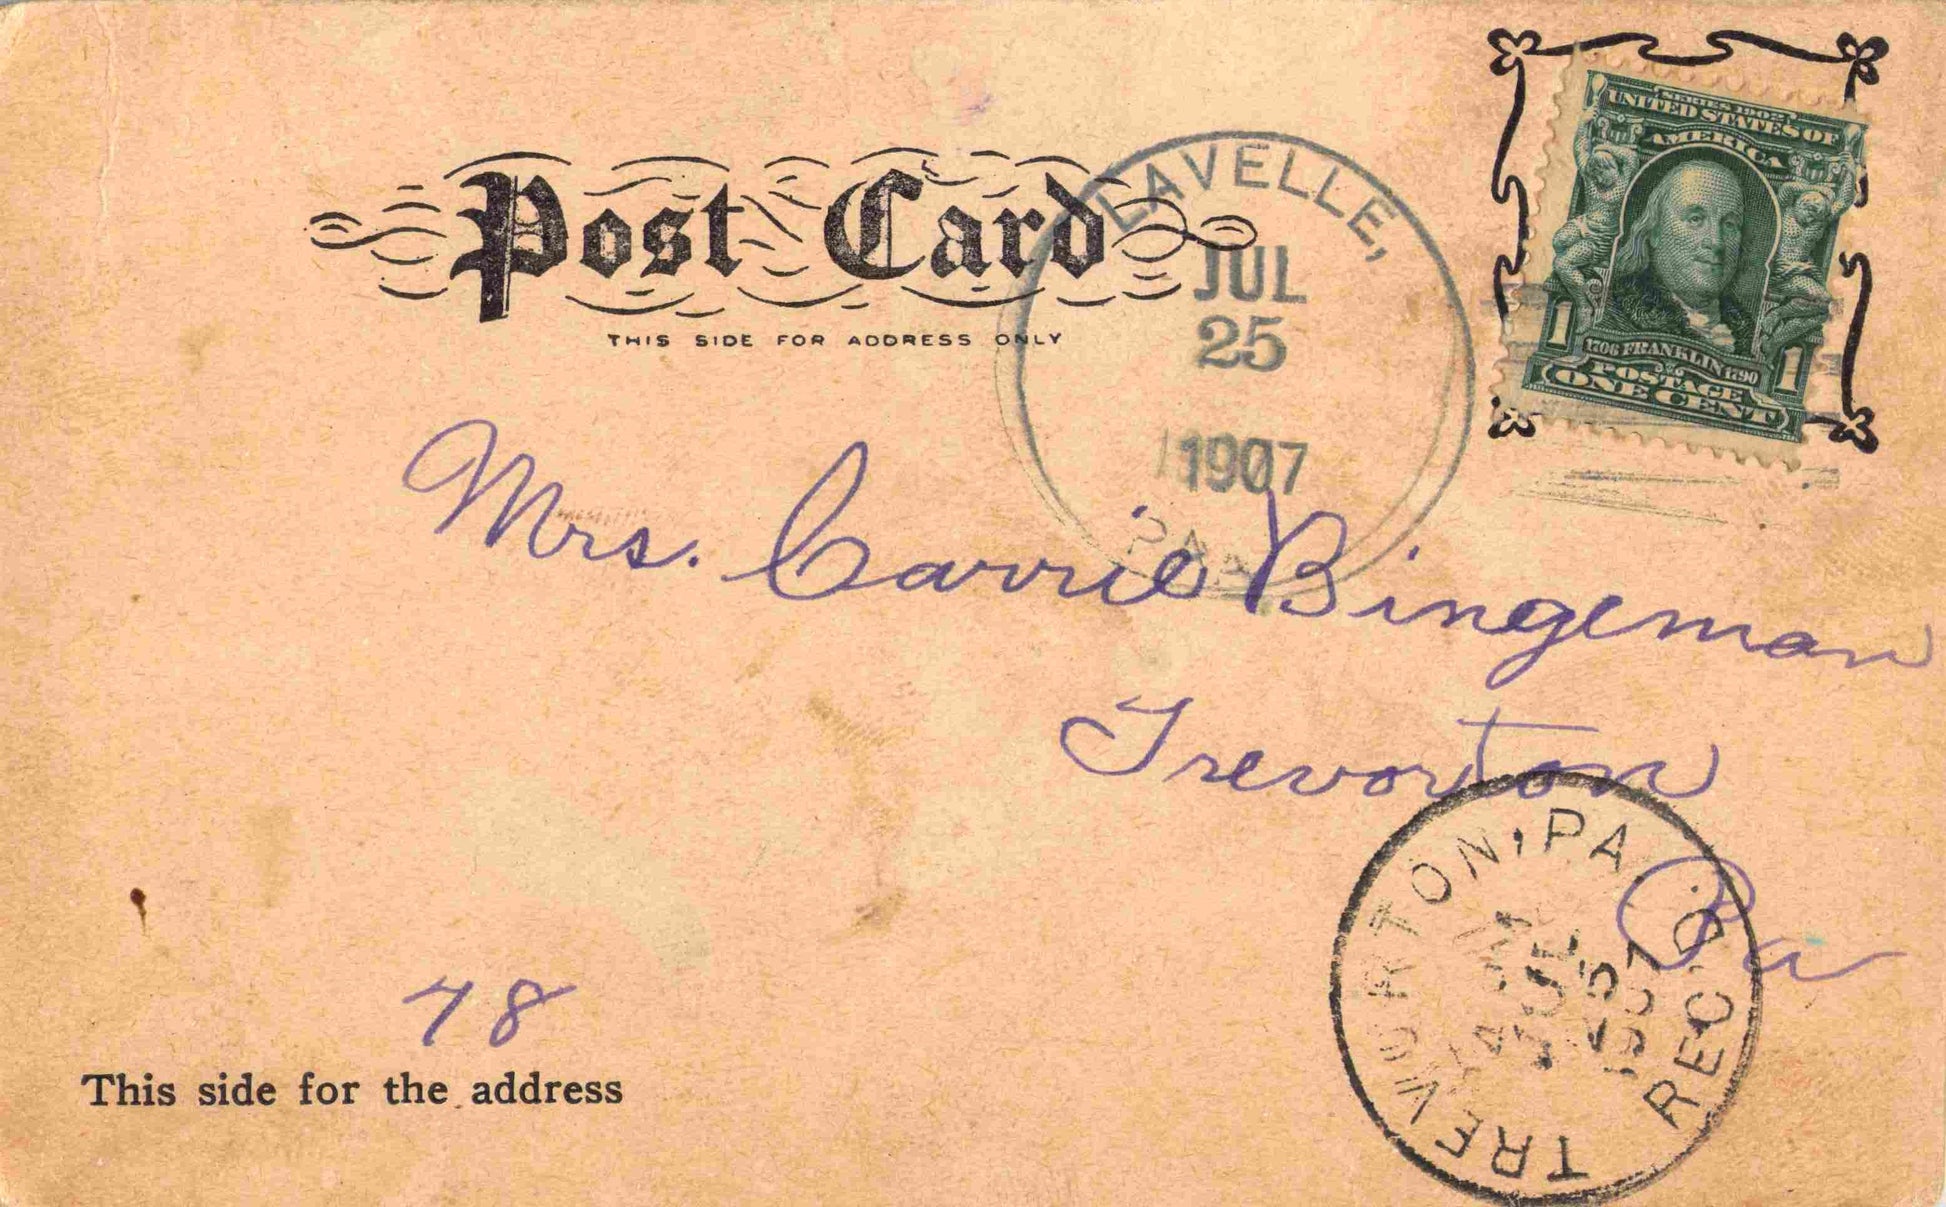 Post Card
THIS SIDE FOR ADDRESS ONLY
LAVELLE,
JUL
25
1907
PA
SERIES 1902
UNITED STATES OF
AMERICA
1 1
1706 FRANKLIN 1790
POSTAGE
ONE CENT
Mrs. Carrie Bingeman
Trevorton
Pa
TREVORTON, PA. REC'D.
AM
JUL
25
1907
78
This side for the address